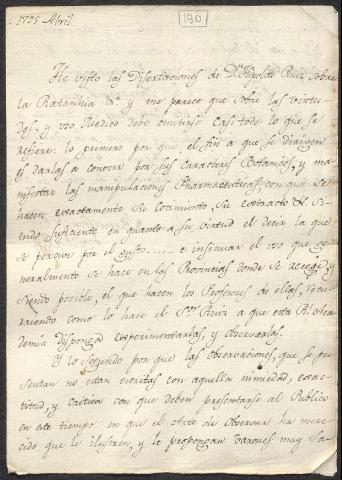 1795 Abril
190
He visto las Disertaciones de Dn. Hipolito Ruiz sobre
la Ratanhia &a y me parece que sobre las virtu-
des, y uso Medico debe omitirse casi todo lo que se
refiere: lo primero por que el fin a que se dirigen
es darlas a conocer por sus caracteres Botanicos, y ma-
nifestar las manipulaciones Pharmaceuticas, con que se
hacen exactamente su cocimiento, su extracto & si-
endo suficiente en quanto a su virtud el decir la que
se percive por el gusto...... e insinuar el uso que ge-
neralmente se hace en las Provincias donde se recoge, y
siendo posible, el que hacen los Profesores de ellas, recu-
rriendo como lo hace el Sor. Ruiz a que esta Rl. Aca-
demia disponga experimentarlas, y observarlas.
Y lo segundo por que las observaciones, que se pre-
sentan no estan escritas con aquella nimiedad, exac-
titud, y critica con que deben presentarse al Publico
en este tiempo en que el Arte de observar ha mere-
cido que le ilustren, y le propongan varones muy sa-